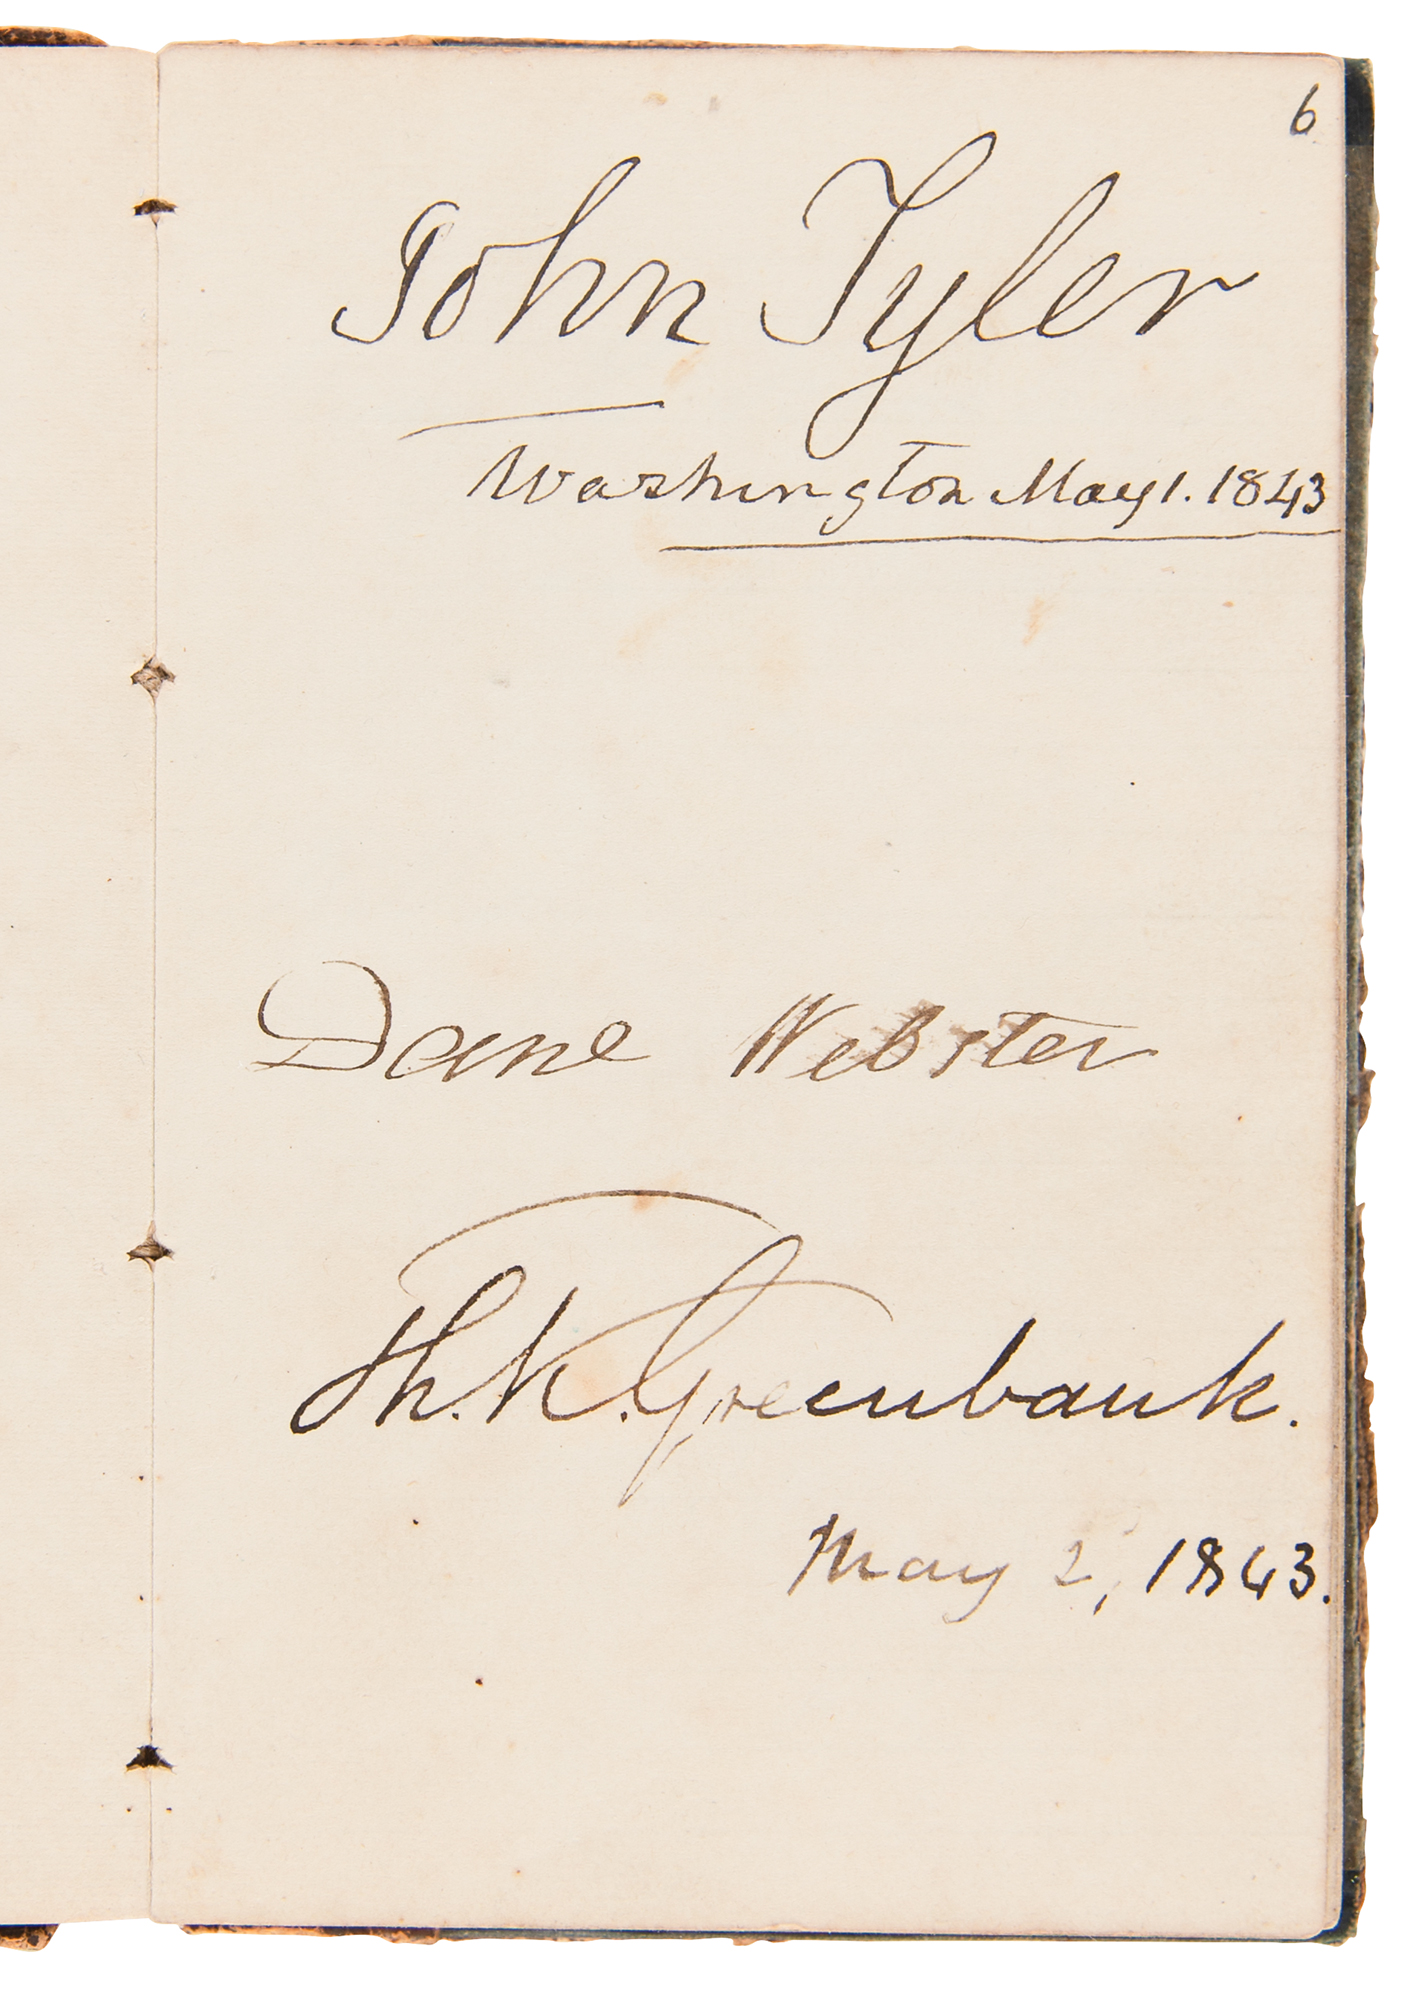 6
John Tyler
Washington May 1. 1843
Dane Webster
Th. K. Greenbank.
May 2, 1843.